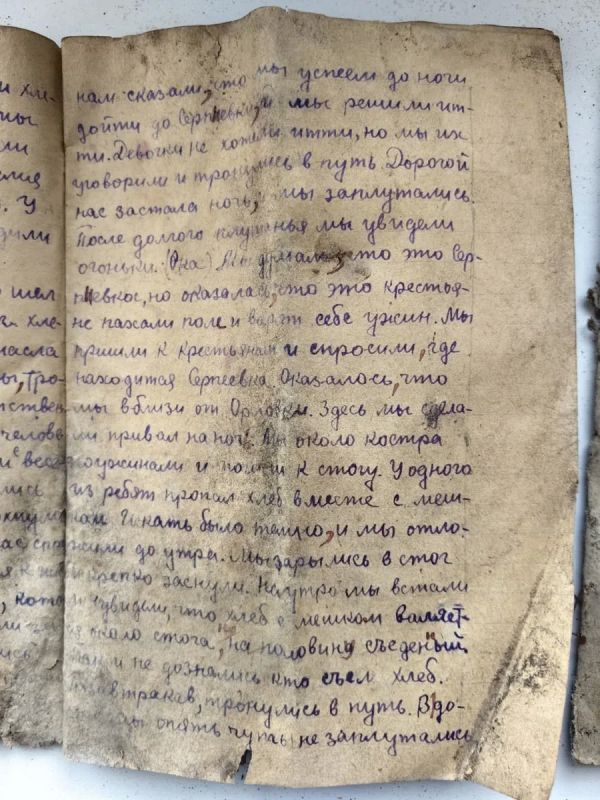 и хле-
ны
ли
У
дили
шел
хле-
масла
тро-
ствен
челове
и всег
лись
нам сказали, что мы успеем до ночи
дойти до Сергиевки, и мы решили ит-
ти. Девочки не хотели итти, но мы их
уговорили и тронулись в путь. Дорогой
нас застала ночь, и мы заплутались.
После долгого клутанья мы увидели
огоньки. (Ока) Мы думали, что это Сер-
гиевкое, но оказалась, что это крестья-
не пахали поле и варят себе ужин. Мы
пришли к крестьянам и спросили, где
находится Сергеевка. Оказалось, что
мы вблизи от Орловки. Здесь мы сдела-
ли привал на ночь. Мы около костра
поужинали и пошли к стогу. У одного
из ребят пропал хлеб вместе с меш-
ком. Искать было темно, и мы отло-
жили до утра. Мы зарылись в стог
и крепко заснули. На утро мы встали
и увидели, что хлеб с мешком валяет-
ся около стога, на половину съеденый
Так и не дознались кто съел хлеб.
Позавтракав, тронулись в путь. В до-
опять чуть не заплутались